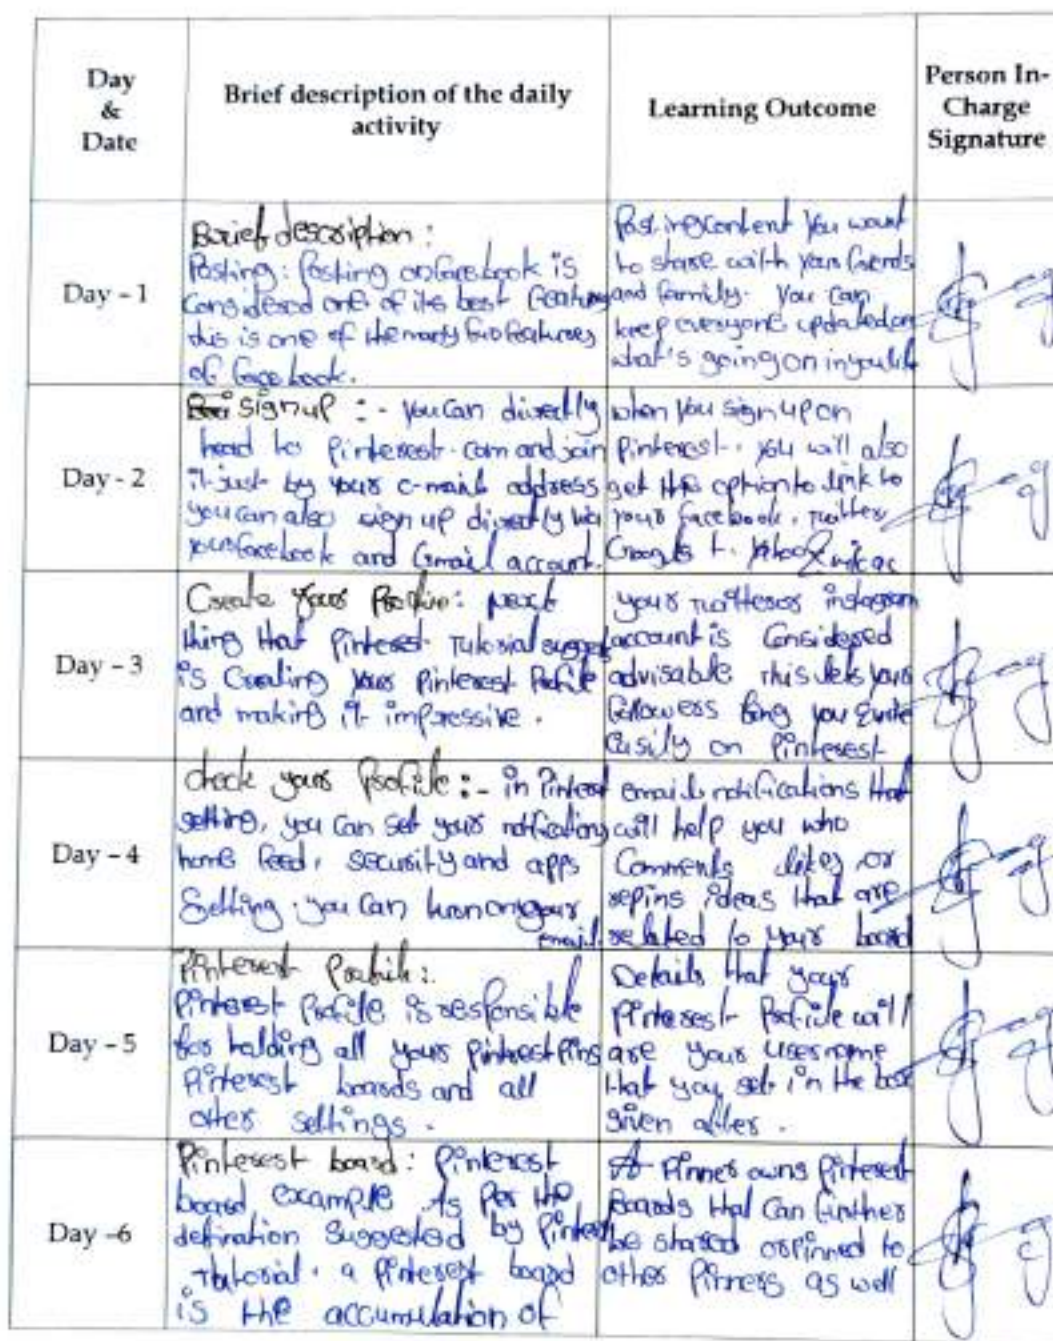 Day
&
Date
Brief description of the daily
activity
Learning Outcome
Person In-
Charge
Signature
Day - 1
Brief description :
Posting : Posting on facebook is
Considered one of its best features
this is one of the many features
of facebook.
Posting content you want
to share with your friends
and family. You can
keep everyone updated on
what's going on in your life
Day - 2
sign up : - you can directly
head to Pinterest.com and join
it just by your e-mail address
you can also sign up directly via
your facebook and Gmail account.
when you sign up on
Pinterest. you will also
get the option to link to
your facebook, twitter
Google +. Yahoo
Day - 3
Create your Profile : next
thing that Pinterest Tutorial suggest
is Creating your Pinterest Profile
and making it impressive .
your twitter or instagram
account is Considered
advisable This lets your
followers you quite
easily on Pinterest
Day - 4
check your Profile : - in Pinterest
setting, you can set your notifications
home feed, security and apps
Setting . you can turn on your
email
email notifications that
will help you who
Comments likes or
repins ideas that are
related to your board
Day - 5
Pinterest Profile :
Pinterest Profile is responsible
for holding all your Pinterest Pins
Pinterest boards and all
other settings .
Details that your
Pinterest Profile will
are your username
that you set in the box
given after .
Day -6
Pinterest board : Pinterest
board example As Per the
defination Suggested by Pinterest
Tutorial . a Pinterest board
is the accumulation of
A Pinner owns Pinterest
Boards that can further
be shared or pinned to
other Pinners as well